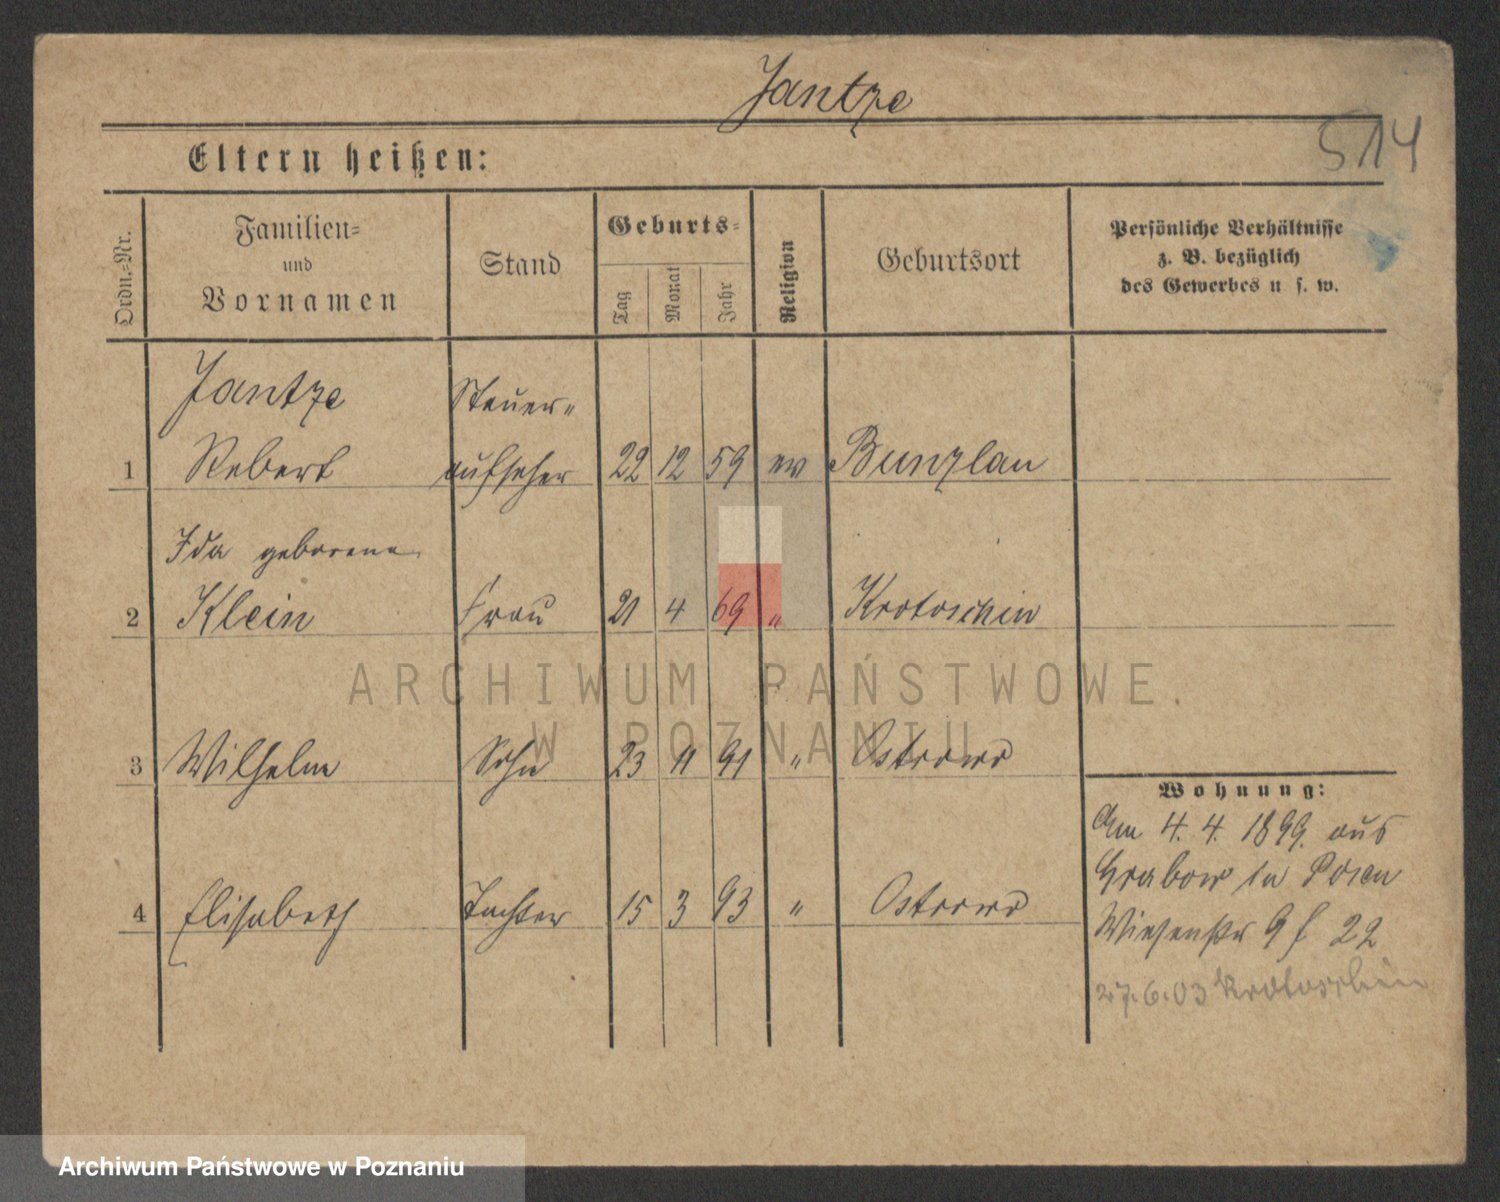 Jantze
514
Eltern heißen:
Ordn.-Nr.
Familien-
und
Vornamen
Stand
Geburts-
Tag
Monat
Jahr
Religion
Geburtsort
Persönliche Verhältnisse
z. B. bezüglich
des Gewerbes u s. w.
Jantze Steuer-
1 Robert aufseher 22 12 59 ev Bunzlau
Ida geborene
2 Klein Frau 21 4 69 " Krotoschin
ARCHIWUM PAŃSTWOWE
W POZNANIU
3 Wilhelm Sohn 23 11 91 " Ostrowo
Wohnung:
Am 4. 4. 1899. aus
Grabow in Posen
4 Elisabeth Tochter 15 3 93 " Ostrowo
Wiesenstr 9 22
27.6.03 Krotoschin
Archiwum Państwowe w Poznaniu